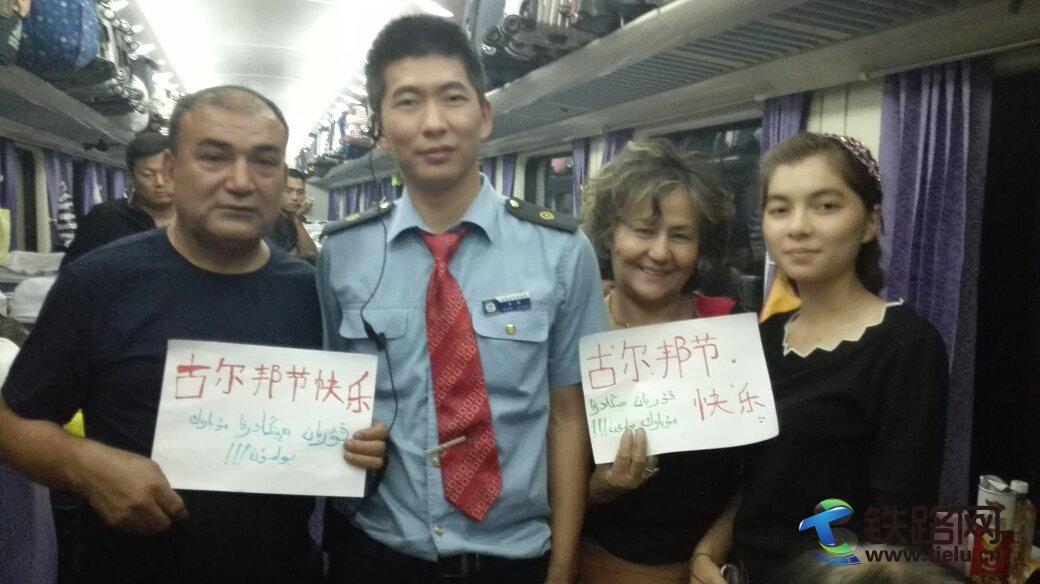 古尔邦节快乐
قۇربان ھېيتىڭلارغا مۇبارەك
بولسۇن!!!
古尔邦节.
快乐
قۇربان ھېيتىڭلارغا
مۇبارەك بولسۇن!!!
铁路网
www.tielu.cn